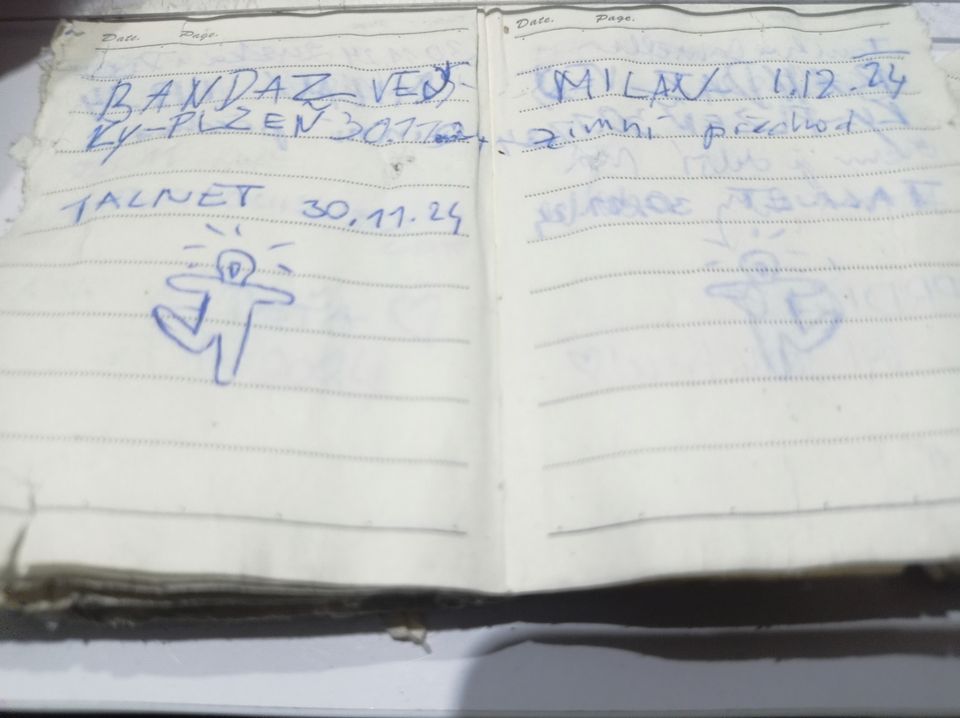 Date. Page.
BANDAZ VEJŠ-
KY-PLZEŇ 30.11.
TALNET 30.11.24
Date. Page.
MILAN 1.12.24
zimní přechod